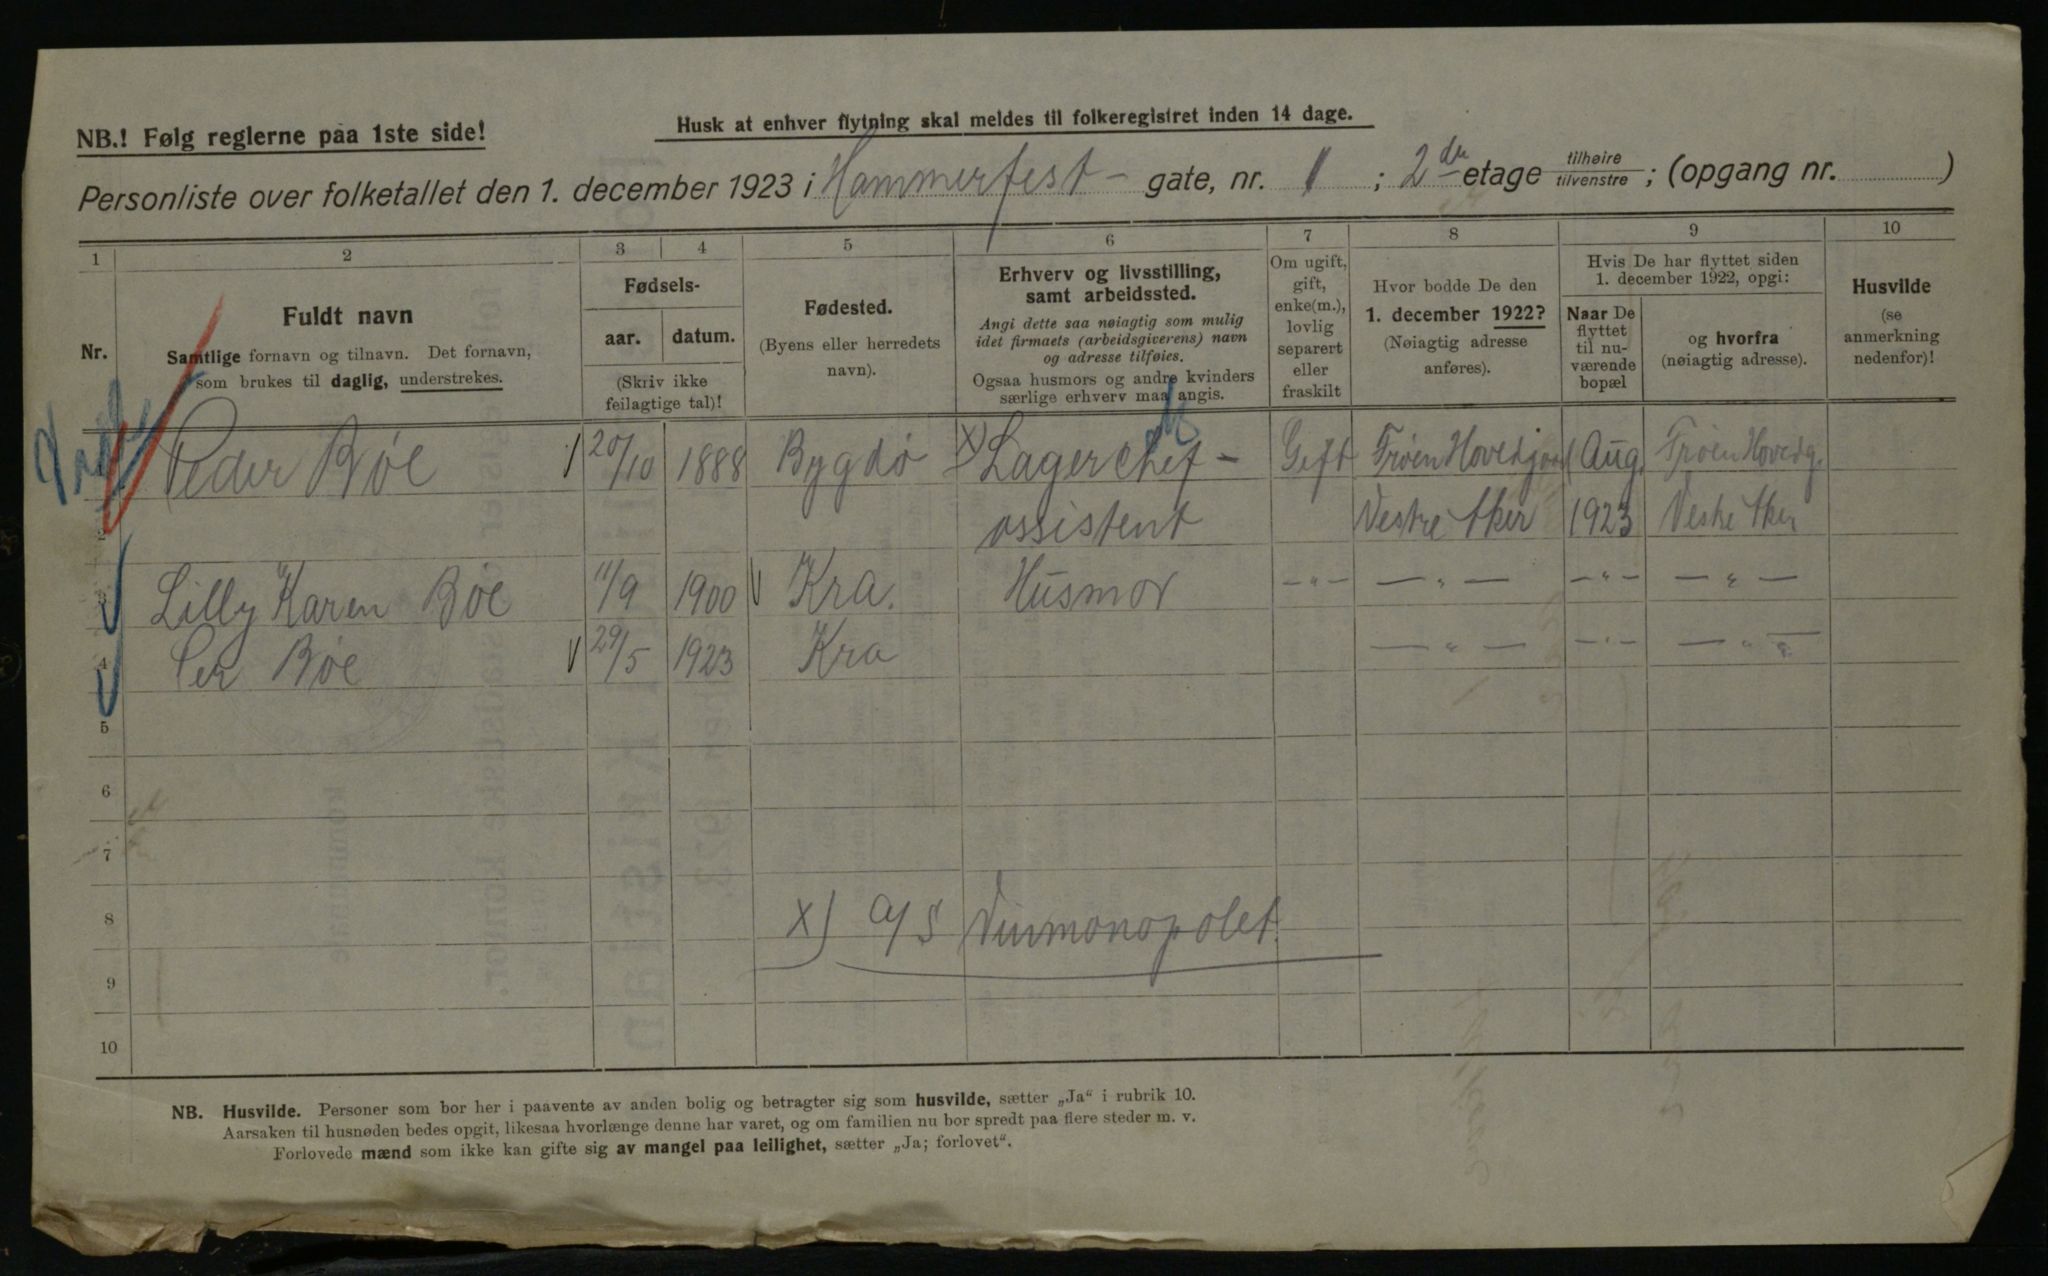 NB.! Følg reglerne paa 1ste side!
Husk at enhver flytning skal meldes til folkeregistret inden 14 dage.
Personliste over folketallet den 1. december 1923 i Hammerfest - gate, nr. 1 ; 2 den etage tilhøire tilvenstre ; (opgang nr. )
1 2 3 4 5 6 7 8 9 10
Nr.
Fuldt navn
Samtlige fornavn og tilnavn. Det fornavn,
som brukes til daglig, understrekes.
Fødsels-
aar. datum.
(Skriv ikke
feilagtige tal)!
Fødested.
(Byens eller herredets
navn).
Erhverv og livsstilling,
samt arbeidssted.
Angi dette saa nøiagtig som mulig
idet firmaets (arbeidsgiverens) navn
og adresse tilføies.
Ogsaa husmors og andre kvinders
særlige erhverv maa angis.
Om ugift,
gift,
enke(m.),
lovlig
separert
eller
fraskilt
Hvor bodde De den
1. december 1922?
(Nøiagtig adresse
anføres).
Hvis De har flyttet siden
1. december 1922, opgi:
Naar De
flyttet
til nu-
værende
bopæl
og hvorfra
(nøiagtig adresse).
Husvilde
(se
anmerkning
nedenfor)!
Peder Bøe 20/10 1888 Bygdø x) Lagerchef - Gift Frøen Hovedgaard Aug. Frøen Hovedg.
2 assistent Vestre Aker 1923 Vestre Aker
3 Lilly Karen Bøe 11/9 1900 Kra. Husmor -"- -"- -"- -"-
4 Per Bøe 29/5 1923 Kra -"- -"- -"-
5
6
7
8 x) A/S Vinmonopolet.
9
10
NB. Husvilde. Personer som bor her i paavente av anden bolig og betragter sig som husvilde, sætter „Ja“ i rubrik 10.
Aarsaken til husnøden bedes opgit, likesaa hvorlænge denne har varet, og om familien nu bor spredt paa flere steder m. v.
Forlovede mænd som ikke kan gifte sig av mangel paa leilighet, sætter „Ja; forlovet“.